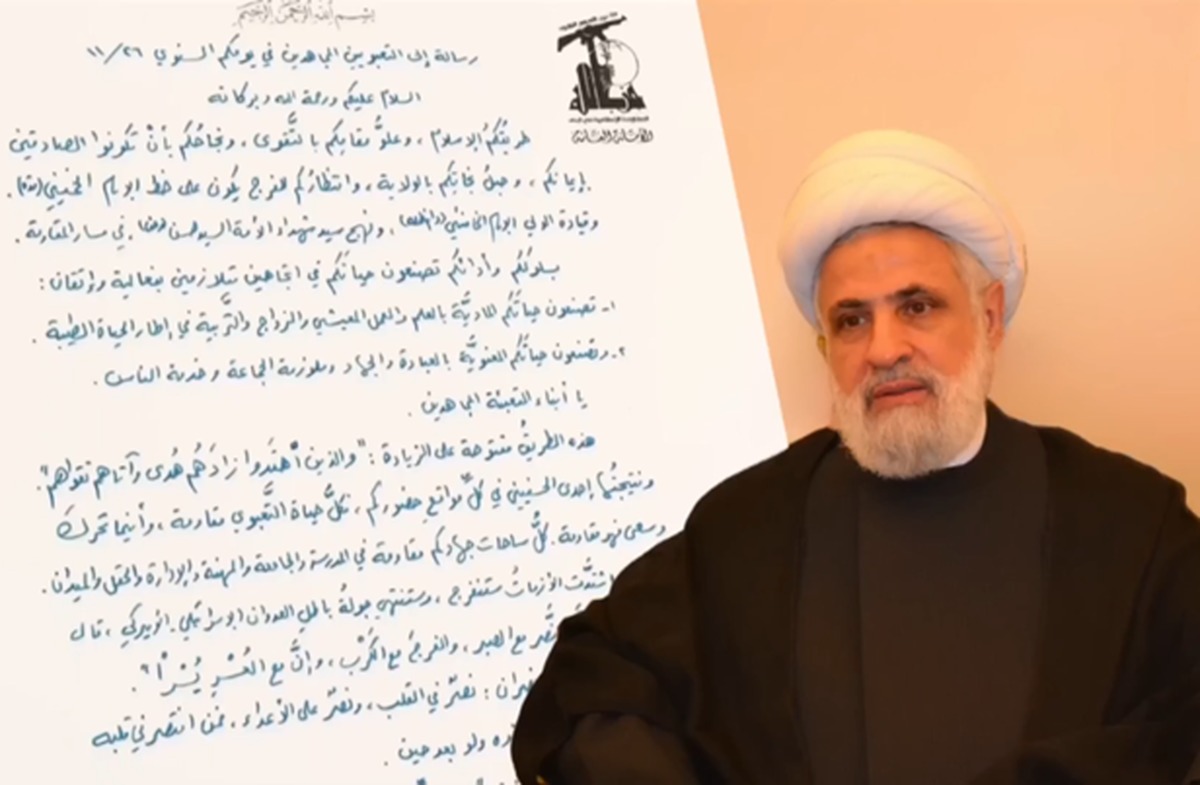 بسم الله الرحمن الرحيم
رسالة إلى التعبويين المجاهدين في يومكم السنوي ٢٦/١١
السلام عليكم ورحمة الله وبركاته
حزب الله
الأمانة العامة
طريقُكُم الإسلام، وعلوُّ مقامِكم بالتَّقوى، ونجاحُكم بأنْ تكونوا الصادقين
بإيمانكم، وحبلُ نجاتِكم بالولاية، وانتظارُكم للفرج يكون على خط الإمام الخميني (قده)،
وقيادة الولي الإمام الخامنئي (دام ظله)، ونهج سيد شهداء الأمة السيد حسن (رض) في مسار المقاومة.
بسلوككم وأدائكم تصنعون حياتَكم في اتجاهين متلازمين بفعالية وإتقان:
١- تصنعون حياتَكم الماديَّة بالعلم والعمل المعيشي والزواج والتَّربية في إطار الحياة الطيبة.
٢- وتصنعون حياتَكم المعنويَّة بالعبادة والجهاد وملازمة الجماعة وخدمة الناس.
يا أبناء التعبئة المجاهدين.
هذه الطريقُ مفتوحة على الزيادة: "والذين اهتَدَوا زادَهُم هُدى وآتاهم تقواهم".
ونتيجتُها إحدى الحسنيين في كلِّ مواقع حضوركم، فكلُّ حياة التَّعبوي مقاومة، وأينما تحركَ
وسعى فهو مقاومة. كلُّ ساحات جهادكم مقاومة في المدرسة والجامعة والمهنة والإدارة والحقل والميدان.
اشتدَّت الأزماتُ ستنفرج، وستنتهي جولةُ باطل العدوان الإسرائيلي الأميركي، قال
النَّصر مع الصبر، والفرجَ مع الكَرْب، وإنَّ مع العُسْرِ يُسْراً".
نصران: نصرٌ في القلب، ونصرٌ على الأعداء، فمن انتصر في قلبه
ولو بعد حين.